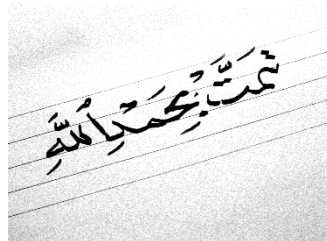 تمَّت بِحَمْدِ اللهِ